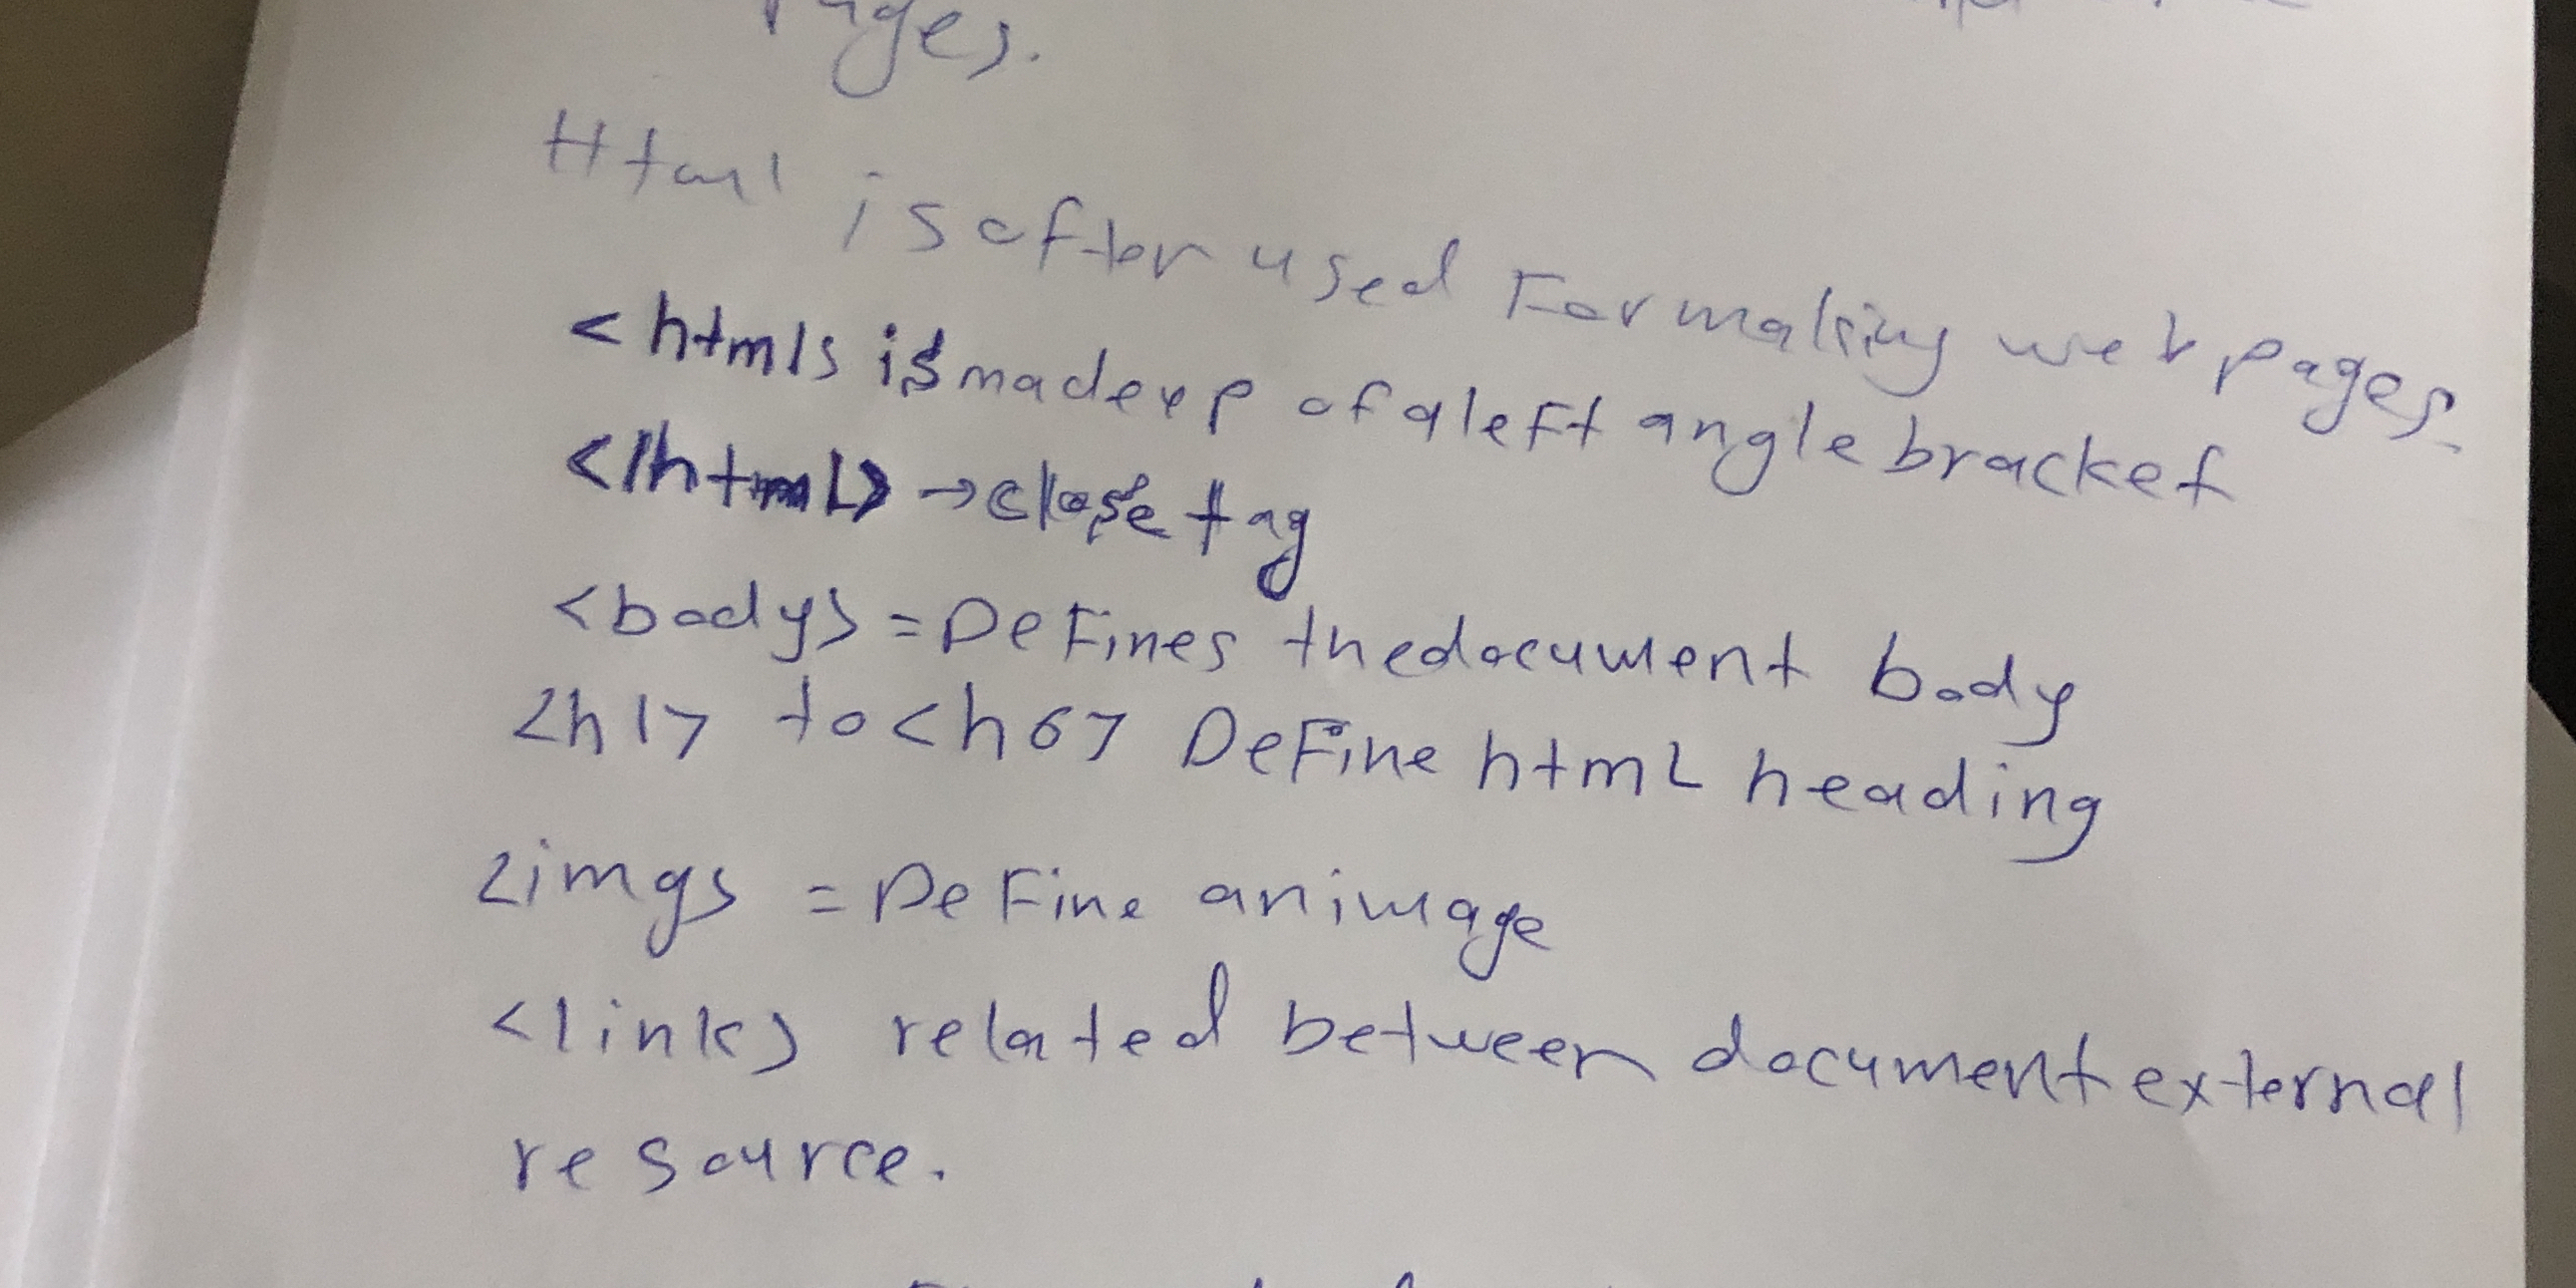 Pages.
Html is often used For making web pages.
<html> is made up of a left angle bracket
</html> → close tag
<body> = Defines the document body
<h1> to <h6> Define html heading
<img> = Define an image
<link> related between document external
resource.